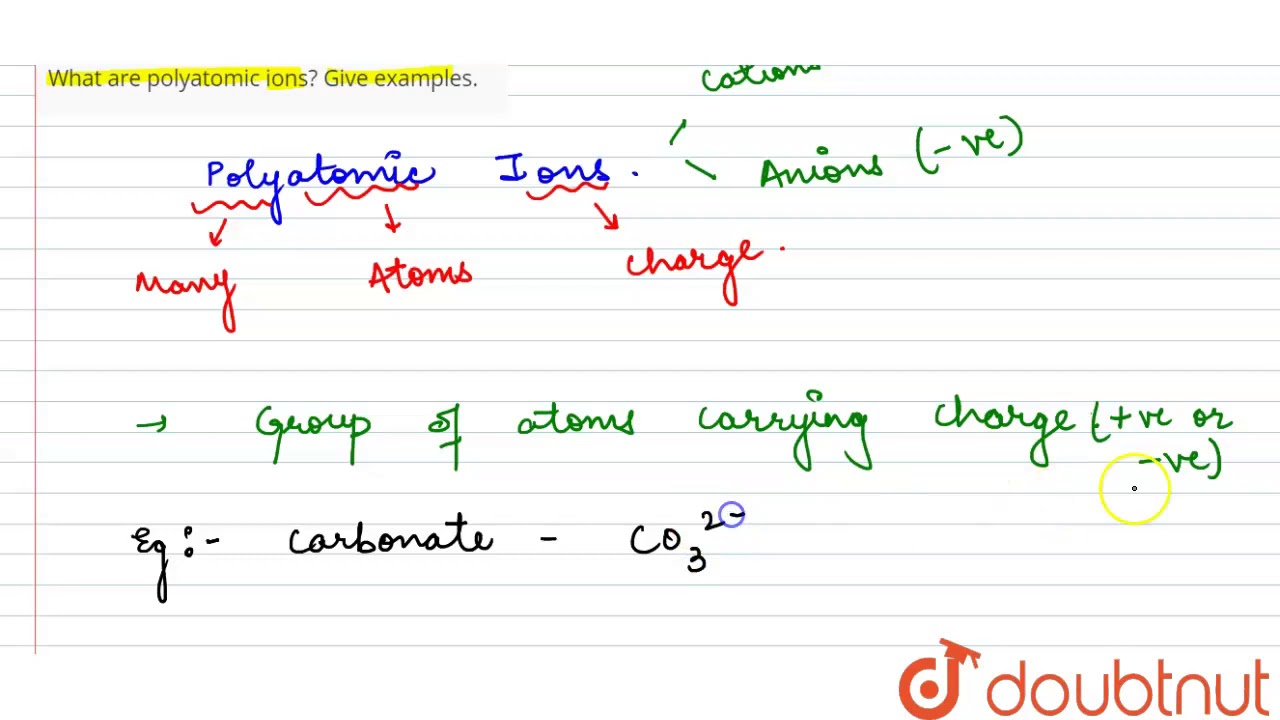 What are polyatomic ions? Give examples.
cations
Anions (-ve)
Polyatomic Ions.
Many Atoms charge.
→ Group of atoms carrying charge (+ve or
-ve)
Eg :- carbonate - CO₃²⁻
doubtnut